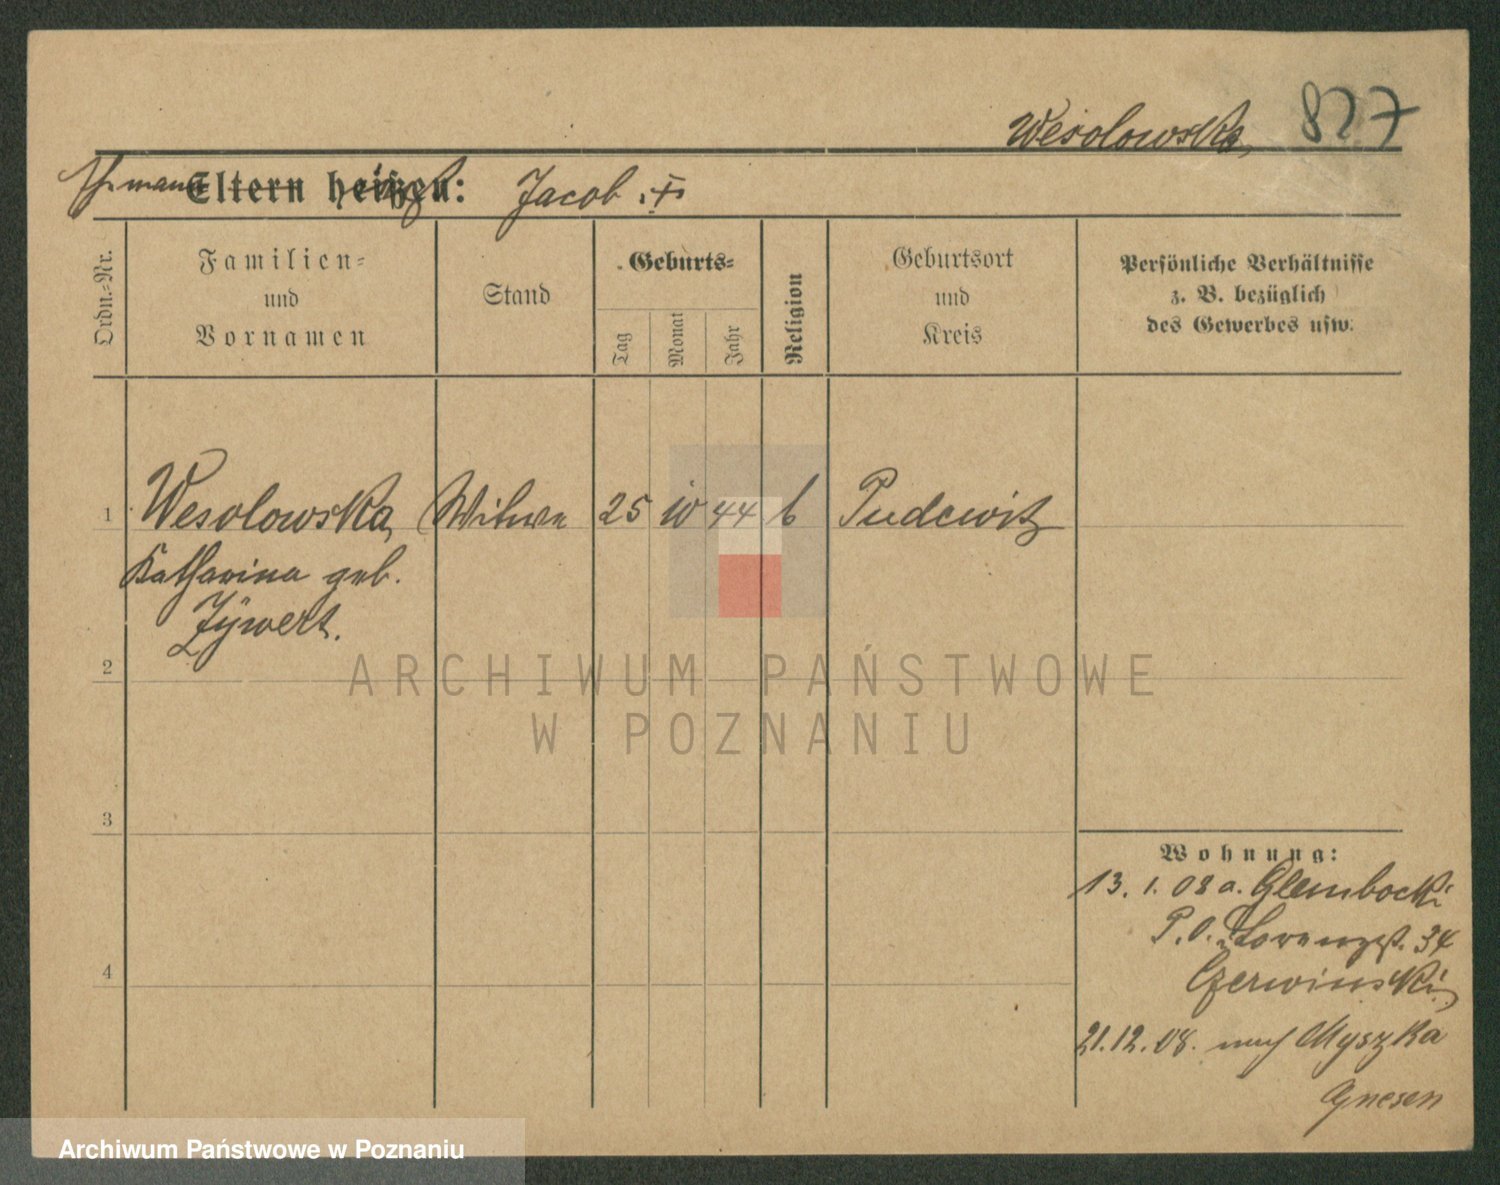 Wesolowska, 827
Ehemann Eltern heißen: Jacob. †
Ordn.-Nr.
Familien-
und
Vornamen
Stand
Geburts-
Tag
Monat
Jahr
Religion
Geburtsort
und
Kreis
Persönliche Verhältnisse
z. B. bezüglich
des Gewerbes usw.
1 Wesolowska, Witwe 25 10 44 k Pudewitz
Katharina geb.
Zÿwert.
2
ARCHIWUM PAŃSTWOWE
W POZNANIU
3
Wohnung:
13. 1. 08 a. Glembocki
P. O. Lorenzst. 34
Czerwinski
4
21.12.08. nach Myszka
Gnesen
Archiwum Państwowe w Poznaniu